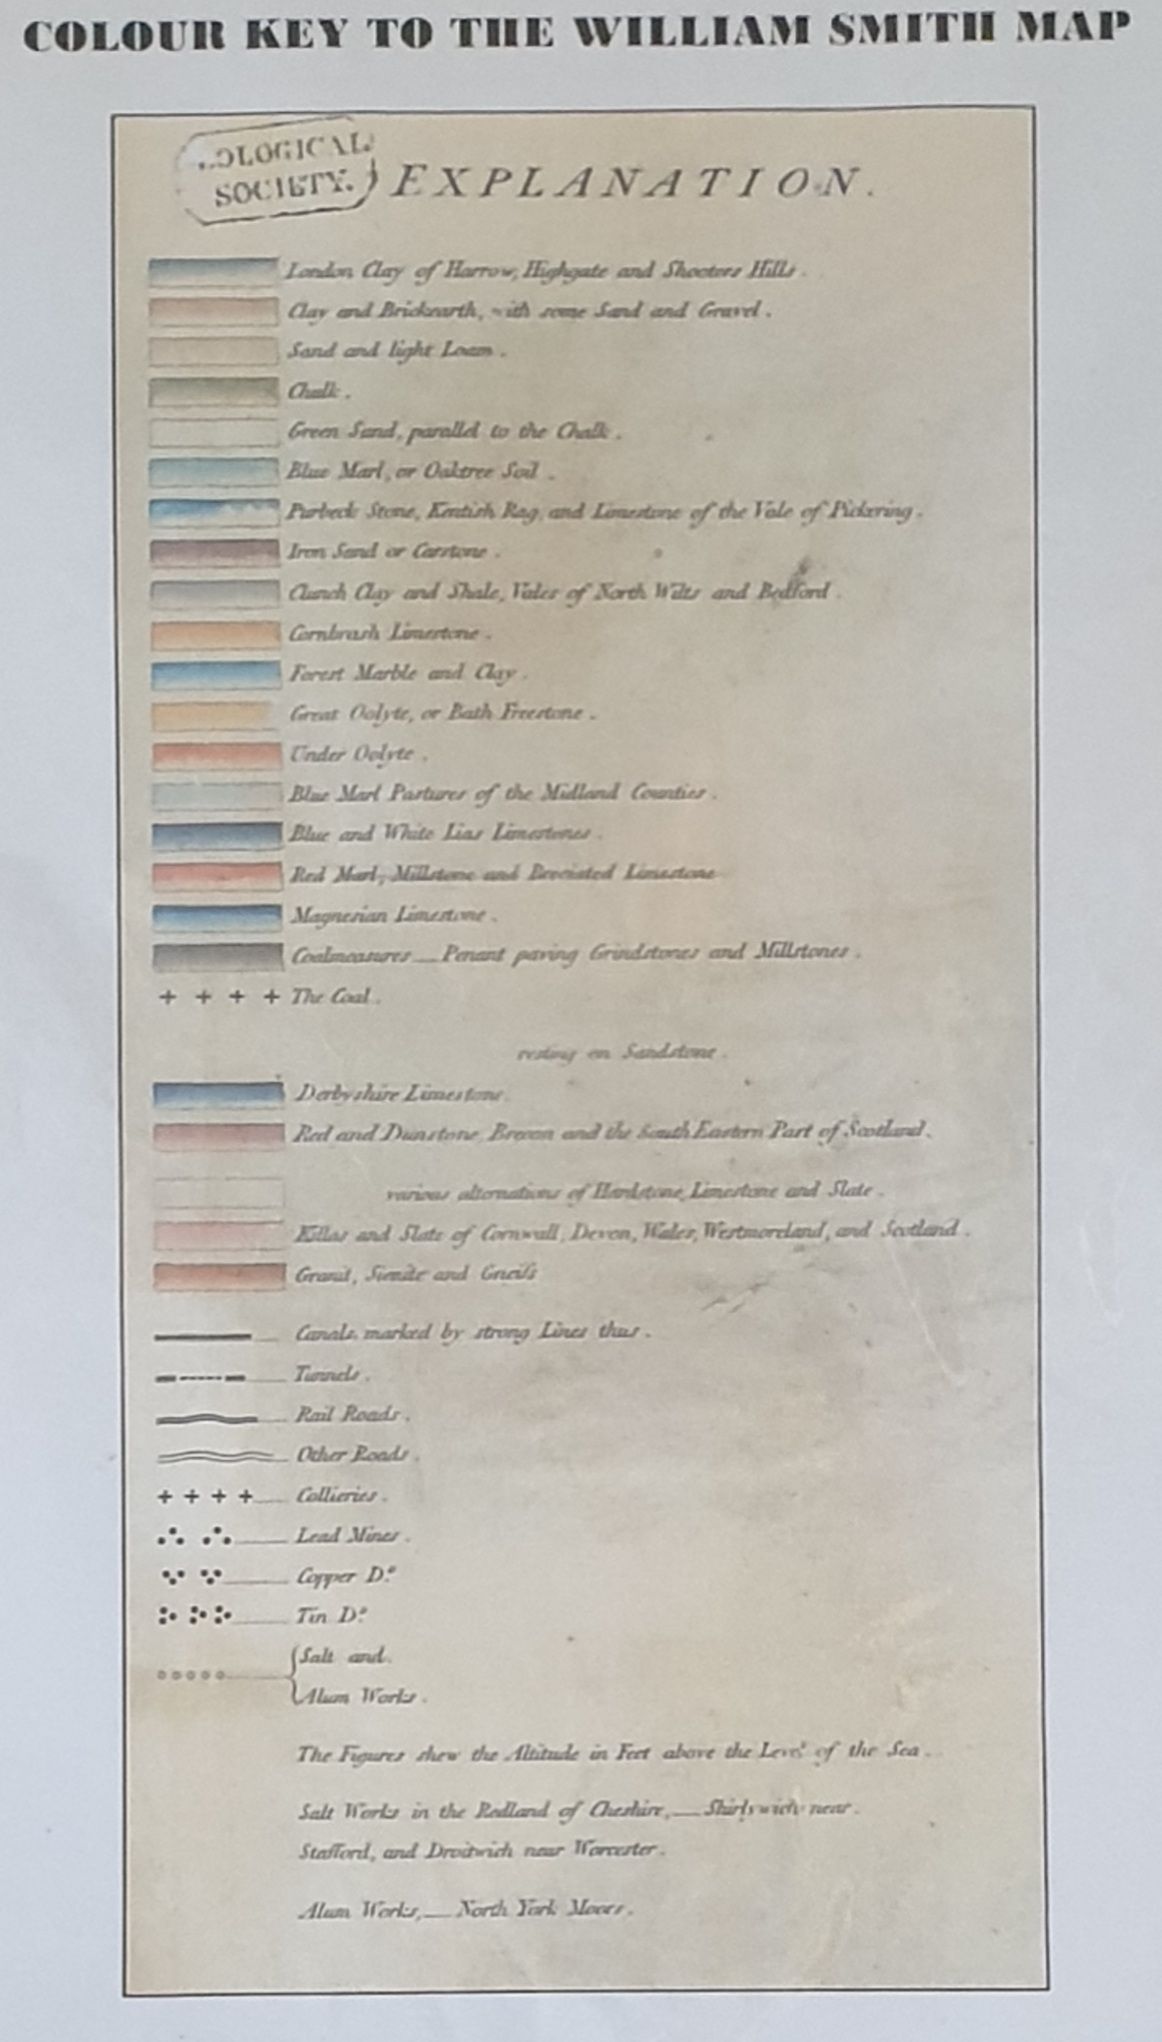 COLOUR KEY TO THE WILLIAM SMITH MAP
OLOGICAL
SOCIETY.
EXPLANATION.
London Clay of Harrow, Highgate and Shooters Hills.
Clay and Brickearth, with some Sand and Gravel.
Sand and light Loam.
Chalk.
Green Sand, parallel to the Chalk.
Blue Marl, or Oaktree Soil.
Purbeck Stone, Kentish Rag, and Limestone of the Vale of Pickering.
Iron Sand or Carstone.
Clunch Clay and Shale, Vales of North Wilts and Bedford.
Cornbrash Limestone.
Forest Marble and Clay.
Great Oolyte, or Bath Freestone.
Under Oolyte.
Blue Marl Pastures of the Midland Counties.
Blue and White Lias Limestones.
Red Marl, Millstone and Brecciated Limestone
Magnesian Limestone.
Coalmeasures — Penant paving Grindstones and Millstones.
+ + + + The Coal.
resting on Sandstone.
Derbyshire Limestone.
Red and Dunstone, Brecon and the South Eastern Part of Scotland.
various alternations of Hardstone, Limestone and Slate.
Killas and Slate of Cornwall, Devon, Wales, Westmoreland, and Scotland.
Granit, Sienite and Gneiſs
Canals marked by strong Lines thus.
Tunnels.
Rail Roads.
Other Roads.
+ + + + Collieries.
Lead Mines.
Copper Dº
Tin Dº
Salt and
Alum Works.
The Figures shew the Altitude in Feet above the Level of the Sea.
Salt Works in the Redland of Cheshire, — Shirlywich near
Stafford, and Droitwich near Worcester.
Alum Works, — North York Moors.